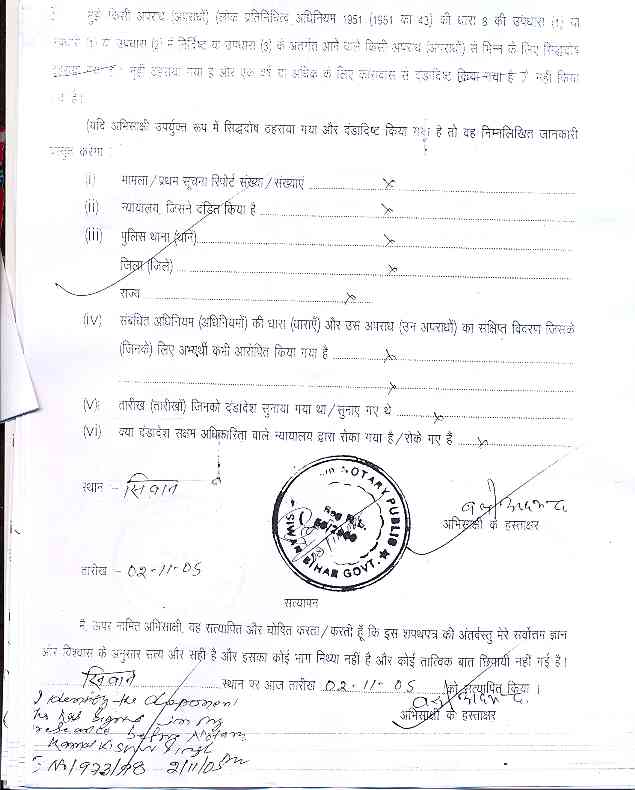 मुझे किसी अपराध (अपराधों) (लोक प्रतिनिधित्व अधिनियम 1951 (1951 का 43) की धारा 8 की उपधारा (1) या
उपधारा (2) में निर्दिष्ट या उपधारा (3) के अंतर्गत आने वाले किसी अपराध (अपराधों) से भिन्न के लिए सिद्धदोष
नहीं ठहराया गया है और एक वर्ष या अधिक के लिए कारावास से दंडादिष्ट किया गया है / नहीं किया
गया है।
(यदि अभिसाक्षी उपर्युक्त रूप में सिद्धदोष ठहराया गया और दंडादिष्ट किया गया है तो वह निम्नलिखित जानकारी
प्रस्तुत करेगा :
(i) मामला / प्रथम सूचना रिपोर्ट संख्या / संख्याएं ........ ×
(ii) न्यायालय, जिसने दंडित किया है ........ ×
(iii) पुलिस थाना (थाने) ........ ×
जिला (जिले) ........ ×
राज्य ........ ×
(iv) संबंधित अधिनियम (अधिनियमों) की धारा (धाराएँ) और उस अपराध (उन अपराधों) का संक्षिप्त विवरण जिसके
(जिनके) लिए अभ्यर्थी कभी आरोपित किया गया है ........ ×
........ ×
(v) तारीख (तारीखों) जिनको दंडादेश सुनाया गया था / सुनाए गए थे ........ ×
(vi) क्या दंडादेश सक्षम अधिकारिता वाले न्यायालय द्वारा रोका गया है / रोके गए हैं ........ ×
स्थान :- सिवान
NOTARY PUBLIC
Reg No.
SIWAN BIHAR GOVT.
अभिसाक्षी के हस्ताक्षर
तारीख :- 02-11-05
सत्यापन
मैं, ऊपर नामित अभिसाक्षी, यह सत्यापित और घोषित करता / करती हूँ कि इस शपथपत्र की अंतर्वस्तु मेरे सर्वोत्तम ज्ञान
और विश्वास के अनुसार सत्य और सही है और इसका कोई भाग मिथ्या नहीं है और कोई तात्विक बात छिपायी नहीं गई है।
सिवान स्थान पर आज तारीख 02-11-05 को सत्यापित किया ।
अभिसाक्षी के हस्ताक्षर
I identify the deponent
he has signed in my
presence before Notary
Kamal Kishor Singh
2/11/05